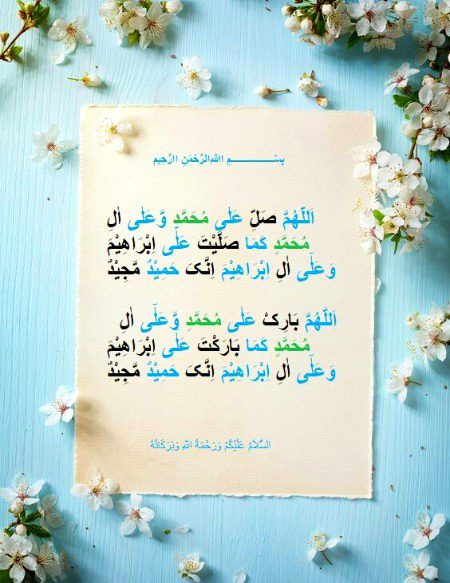 بِسْــــــــــــــــمِ اللهِ الرَّحْمٰنِ الرَّحِيمِ
اَللّٰهُمَّ صَلِّ عَلٰی مُحَمَّدٍ وَّعَلٰٓی اٰلِ
مُحَمَّدٍ کَمَا صَلَّیْتَ عَلٰٓی اِبْرَاهِیْمَ
وَعَلٰٓی اٰلِ اِبْرَاهِیْمَ اِنَّکَ حَمِیْدٌ مَّجِیْدٌ
اَللّٰهُمَّ بَارِکْ عَلٰی مُحَمَّدٍ وَّعَلٰٓی اٰلِ
مُحَمَّدٍ کَمَا بَارَکْتَ عَلٰٓی اِبْرَاهِیْمَ
وَعَلٰٓی اٰلِ اِبْرَاهِیْمَ اِنَّکَ حَمِیْدٌ مَّجِیْدٌ
اَلسَّلَامُ عَلَيْكُمْ وَرَحْمَةُ اللهِ وَبَرَكَاتُهُ